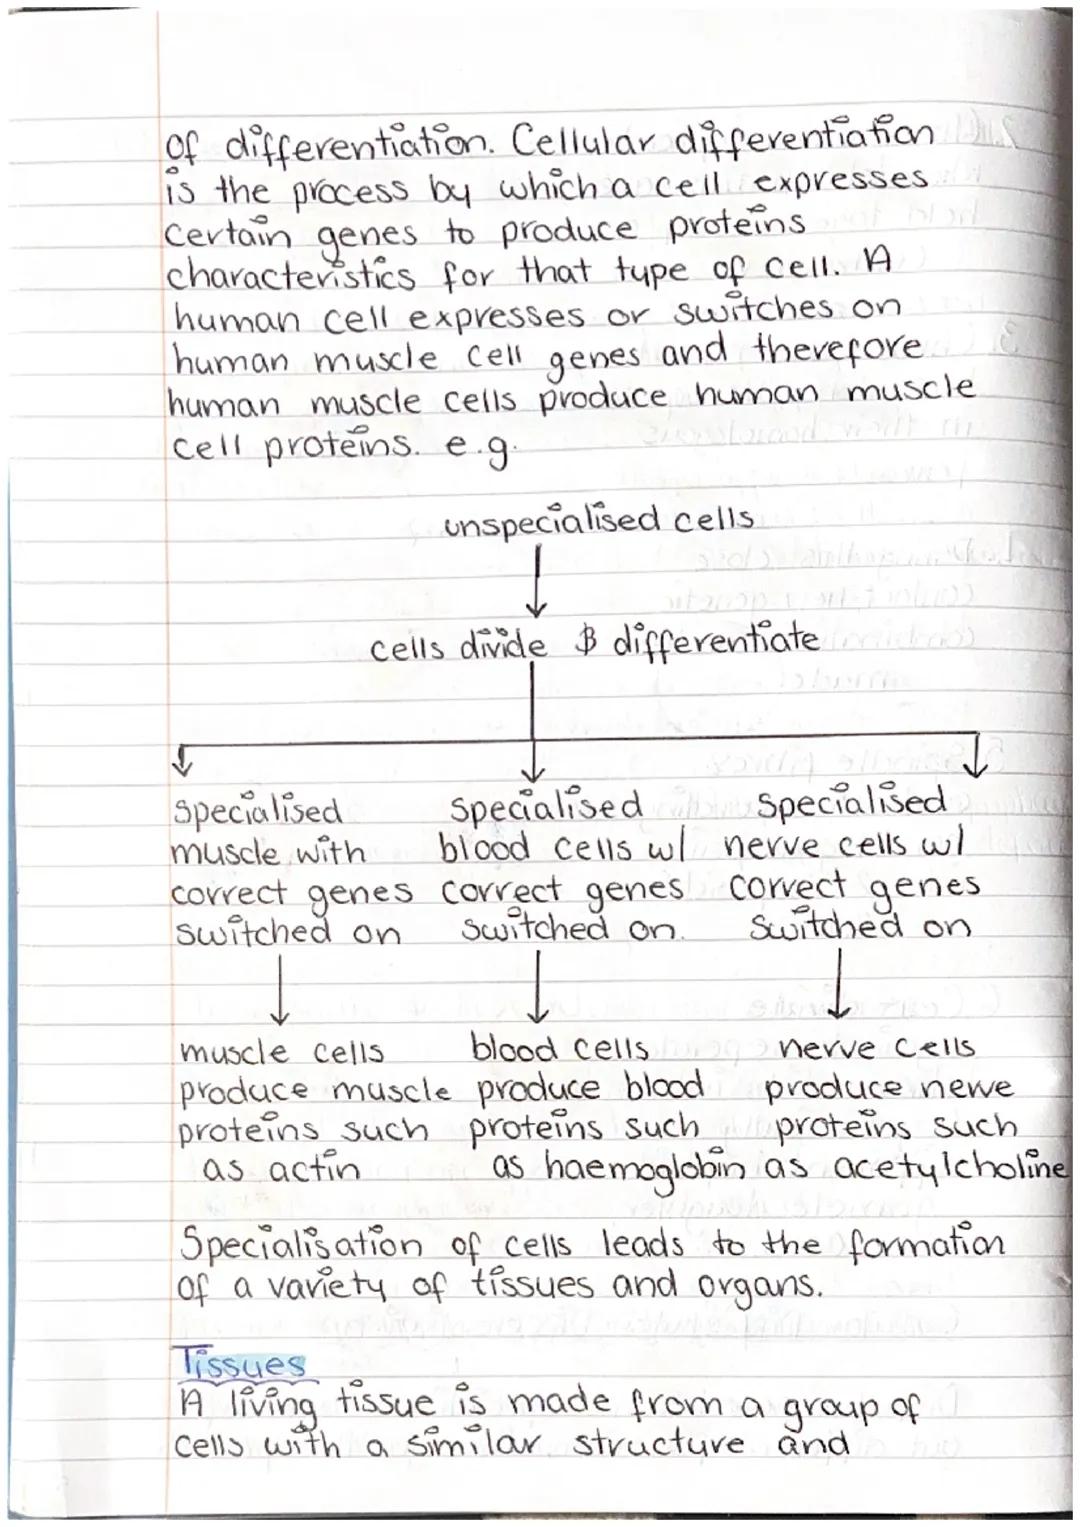 of differentiation. Cellular differentiation
is the process by which a cell expresses
certain genes to produce proteins
characteristics for that type of cell. A
human cell expresses or switches on
human muscle cell genes and therefore
human muscle cells produce human muscle
cell proteins. e.g.
unspecialised cells
cells divide & differentiate
specialised
muscle with
correct genes
switched on
specialised
blood cells w/
correct genes
switched on.
specialised
nerve cells w/
correct genes
switched on
muscle cells
produce muscle
proteins such
as actin
blood cells
produce blood
proteins such
as haemoglobin
nerve cells
produce nerve
proteins such
as acetylcholine
Specialisation of cells leads to the formation
of a variety of tissues and organs.
Tissues
A living tissue is made from a group of
cells with a similar structure and